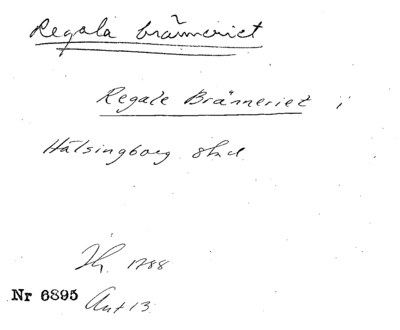 Regala bränneriet
Regale Bränneriet i
Hälsingborg stad
1788
Nr 6895
Ant 13